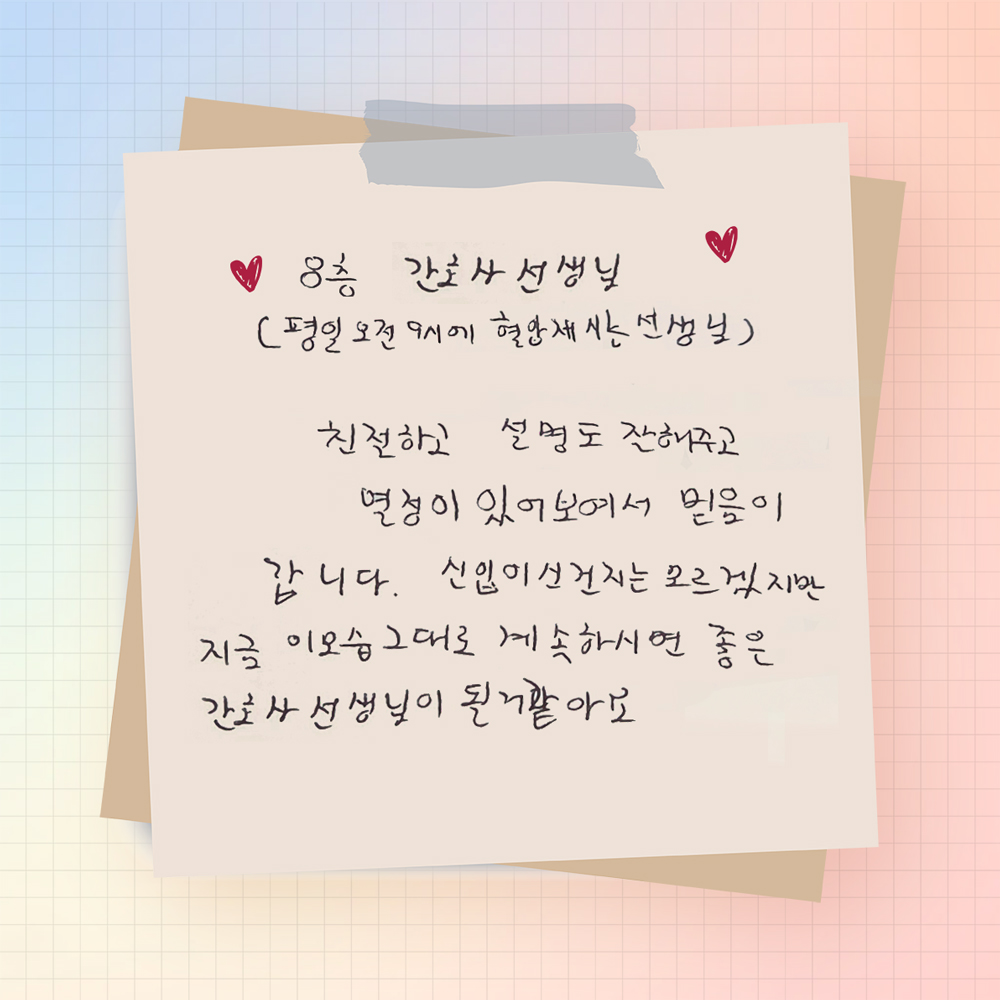 8층 간호사 선생님
(평일 오전 9시에 혈압재시는 선생님)
친절하고 설명도 잘해주고
열정이 있어보여서 믿음이
갑니다. 신입이신건지는 모르겠지만
지금 이모습 그대로 계속하시면 좋은
간호사 선생님이 될거같아요